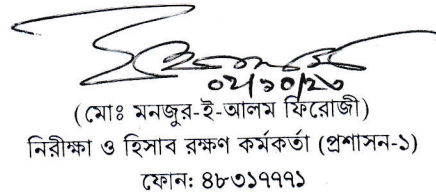 ০২/১০/২৩
(মোঃ মনজুর-ই-আলম ফিরোজী)
নিরীক্ষা ও হিসাব রক্ষণ কর্মকর্তা (প্রশাসন-১)
ফোন: ৪৮৩১৭৭৭১